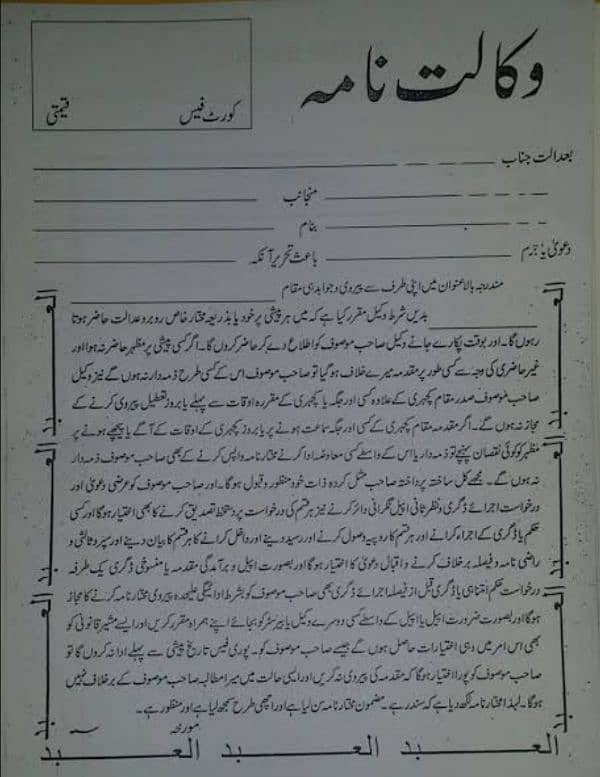 وکالت نامہ
کورٹ فیس قیمتی
بعدالت جناب
منجانب
بنام
دعویٰ یا جرم باعث تحریر آنکہ
مندرجہ بالا عنوان میں اپنی طرف سے پیروی وجوابدہی مقام
بدیں شرط وکیل مقرر کیا ہے کہ میں ہر پیشی پر خود یا بذریعہ مختار خاص روبرو عدالت حاضر ہوتا
رہوں گا۔ اور بوقت پکارے جانے وکیل صاحب موصوف کو اطلاع دے کر حاضر کروں گا۔ اگر کسی پیشی پر مظہر حاضر نہ ہوا اور
غیر حاضری کی وجہ سے کسی طور پر مقدمہ میرے خلاف ہو گیا تو صاحب موصوف اس کے کسی طرح ذمہ دار نہ ہوں گے نیز وکیل
صاحب موصوف صدر مقام کچہری کے علاوہ کسی اور جگہ یا کچہری کے مقررہ اوقات سے پہلے یا بروز تعطیل پیروی کرنے کے
مجاز نہ ہوں گے۔ اگر مقدمہ مقام کچہری کے کسی اور جگہ سماعت ہونے پر یا بروز کچہری کے اوقات کے آگے یا پیچھے ہونے پر
مظہر کو کوئی نقصان پہنچے تو ذمہ دار یا اس کے واسطے کسی معاوضہ ادا کرنے مختار نامہ واپس کرنے کے بھی صاحب موصوف ذمہ دار
نہ ہوں گے۔ مجھے کل ساختہ پرداختہ صاحب مثل کردہ ذات خود منظور وقبول ہوگا۔ اور صاحب موصوف کو عرضی دعویٰ اور
درخواست اجرائے ڈگری ونظر ثانی اپیل نگرانی دائر کرنے نیز ہر قسم کی درخواست پر دستخط تصدیق کرنے کا بھی اختیار ہوگا اور کسی
حکم یا ڈگری کے اجراء کرانے اور ہر قسم کا روپیہ وصول کرنے اور رسید دینے اور داخل کرانے کا ہر قسم کا بیان دینے اور سپرد ثالثی و
راضی نامہ و فیصلہ بر خلاف کرنے و اقبال دعویٰ کا اختیار ہوگا اور بصورت اپیل و برآمدگی مقدمہ یا منسوخی ڈگری یک طرفہ
درخواست حکم امتناہی یا ڈگری قبل از فیصلہ اجرائے ڈگری بھی صاحب موصوف کو بشرط ادائیگی علیحدہ پیروی مختار نامہ کرنے کا مجاز
ہوگا اور بصورت ضرورت اپیل یا اپیل کے واسطے کسی دوسرے وکیل یا بیرسٹر کو بجائے اپنے ہمراہ مقرر کریں اور ایسے مشیر قانونی کو
بھی اس امر میں وہی اختیارات حاصل ہوں گے جیسے صاحب موصوف کو۔ پوری فیس تاریخ پیشی سے پہلے ادا نہ کروں گا تو
صاحب موصوف کو پورا اختیار ہوگا کہ مقدمہ کی پیروی نہ کریں اور ایسی حالت میں میرا مطالبہ صاحب موصوف کے برخلاف نہیں
ہوگا۔ لہذا مختار نامہ لکھ دیا ہے کہ سند رہے۔ مضمون مختار نامہ سن لیا ہے اور اچھی طرح سمجھ لیا ہے اور منظور ہے۔
مورخہ
العبد العبد العبد
العبد
العبد
العبد
العبد
العبد
العبد